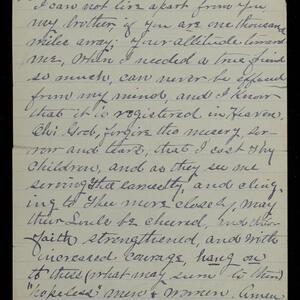 I can not live apart from you
my brother, if you are one thousand
miles away; your attitude toward
me, when I needed a true friend
so much, can never be effaced
from my mind, and I know
that it is registered in Heaven.
Oh! God, forgive the misery, sor-
row and tears, that I cost thy
Children, and as they see me
serving Thee earnestly, and cling-
ing to Thee more closely, may
their Souls be cheered, and their
Faith strengthened, and with
increased courage, hang on
to these (what may seem to them)
"hopeless" men & women. Amen